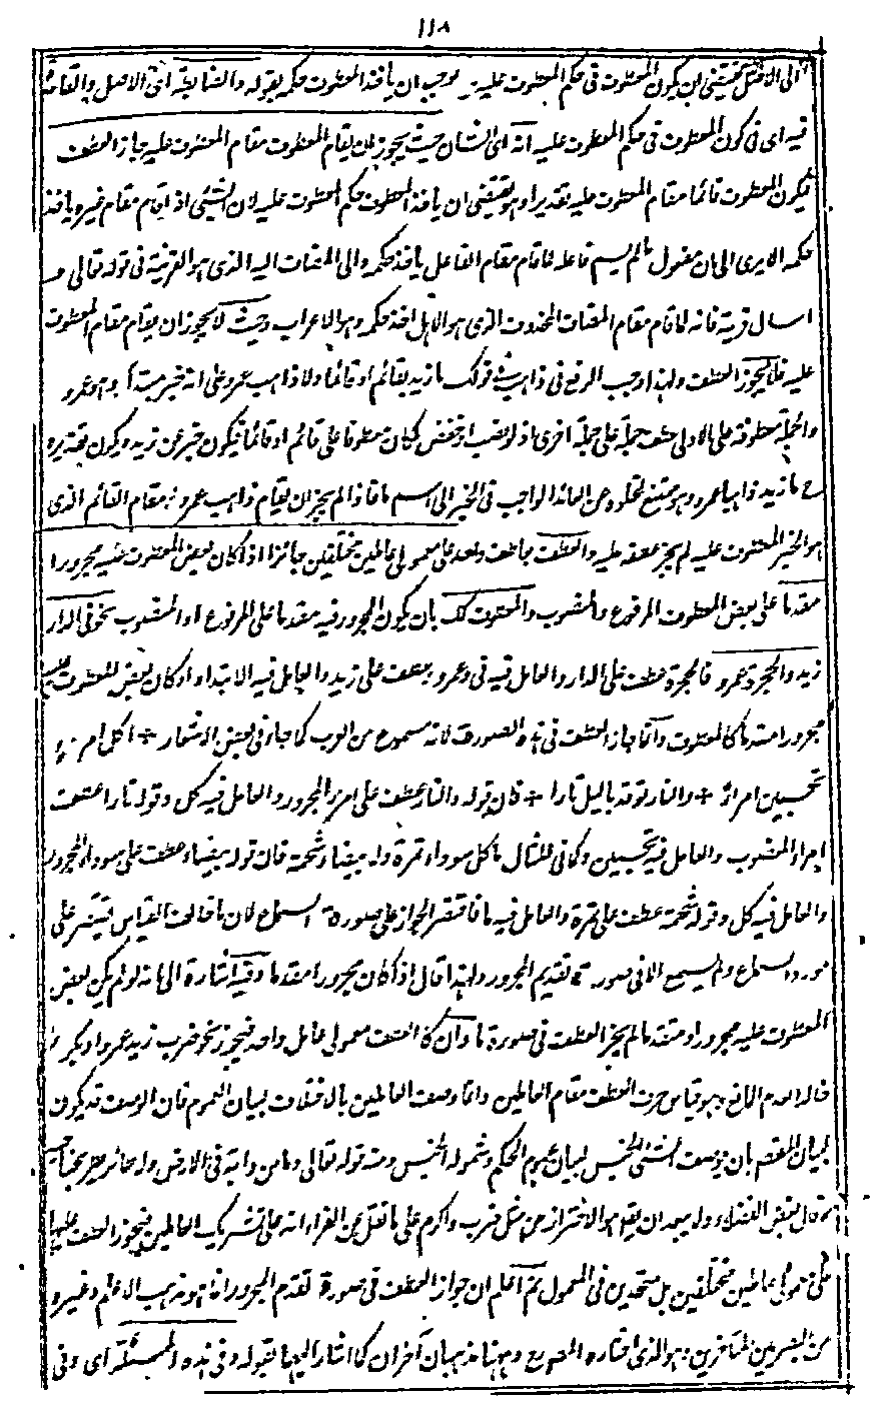 ١١٨
الى الاصل تقتضى ان يكون المعطوف فى حكم المعطوف عليه يوجب ان ياخذ المعطوف حكمه بقوله والضابطة اى الاصل والقاعدة
فيه اى فى كون المعطوف فى حكم المعطوف عليه انه اى الشان حيث يجوز ان يقام المعطوف مقام المعطوف عليه جاز العطف
فيكون المعطوف قائما مقام المعطوف عليه تقديرا وهو يقتضى ان ياخذ المعطوف حكم المعطوف عليه لان الشئ اذا قام مقام غيره ياخذ
حكمه الا يرى الى ان مفعول مالم يسم فاعله لما قام مقام الفاعل ياخذ حكمه والى المضاف اليه الذى هو القرية فى قوله تعالى و
اسال قرية فانه لما قام مقام المضاف المحذوف الذى هو الاهل اخذ حكمه وهو الاعراب وحيث لا يجوز ان يقام مقام المعطوف
عليه فلا يجوز العطف ولهذا وجب الرفع فى ذاهب فى قولك ما زيد بقائم او قائما ولا ذاهب عمرو على انه خبر مبتدأ وهو عمرو
والجملة معطوفة على الاولى عطف جملة على جملة اخرى اذ لو نصب او خفض لكان معطوفا على قائم او قائما فيكون خبرا عن زيد ويكون تقديره
ح ما زيد ذاهبا عمرو وهو ممتنع لخلوه عن العائد الواجب فى الخبر الى اسم ما فاذا لم يجز ان يقام ذاهب عمرو مقام القائم الذى
هو الخبر المعطوف عليه لم يجز عطفه عليه والعطف بعاطف واحد على معمولى عاملين مختلفين جائز اذا كان بعض المعطوف عليه مجرورا
مقدما على بعض المعطوف المرفوع والمنصوب والمعطوف كك بان يكون المجرور فيه مقدما على المرفوع او المنصوب نحو فى الدار
زيد والحجرة عمرو فالحجرة عطف على الدار والعامل فيه فى وعمرو عطف على زيد والعامل فيه الابتداء او كان بعض المعطوف عليه
مجرورا مقدما كالمعطوف وانما جاز العطف فى هذه الصورة لانه مسموع من العرب كما جاء فى بعض الاشعار + اكل امرء
تحسبين امرأ + والنار توقد بالليل نارا + فان قوله والنار عطف على امرء المجرور والعامل فيه كل وقوله نارا عطف
امرأ المنصوب والعامل فيه تحسبين وكما فى المثال ما كل سوداء تمرة ولا بيضاء شحمة فان قوله بيضاء عطف على سوداء المجرور
والعامل فيه كل وقوله شحمة عطف على تمرة والعامل فيه ما فاقتصر الجواز على صورة السماع لان ما خالف القياس يقتصر على
مورد السماع ولم يسمع الا فى صورة تقديم المجرور ولهذا قال اذا كان مجرورا مقدما وفيه اشارة الى انه لو لم يكن بعض
المعطوف عليه مجرورا ومقدما لم يجز العطف فى صورة ما وان كان العطف معمولى عامل واحد فيجوز نحو ضرب زيد عمرا وبكر
خالدا لعدم المانع وهو قيام حرف العطف مقام العاملين وانما وصف العاملين بالاختلاف لبيان العموم فان الوصف قد يكون
لبيان المقصد بان يوصف الشئ للجنس لبيان عموم الحكم وشموله الجنس ومنه قوله تعالى وما من دابة فى الارض ولا طائر يطير بجناحيه
قال بعض الفضلاء ولا يبعد ان يقال هو الاحتراز عن مثل ضرب واكرم على ما نقل عن الفراء انه على تشريك العاملين فيجوز العطف عليها
على معمولى عاملين مختلفين بل متحدين فى المعمول ثم اعلم ان جواز العطف فى صورة تقدم المجرور انما هو مذهب الاعلم وغيره
من البصريين المتاخرين وهو الذى اختاره المص رح وههنا مذهبان آخران كما اشار اليهما بقوله وفى هذه المسئلة اى وفى